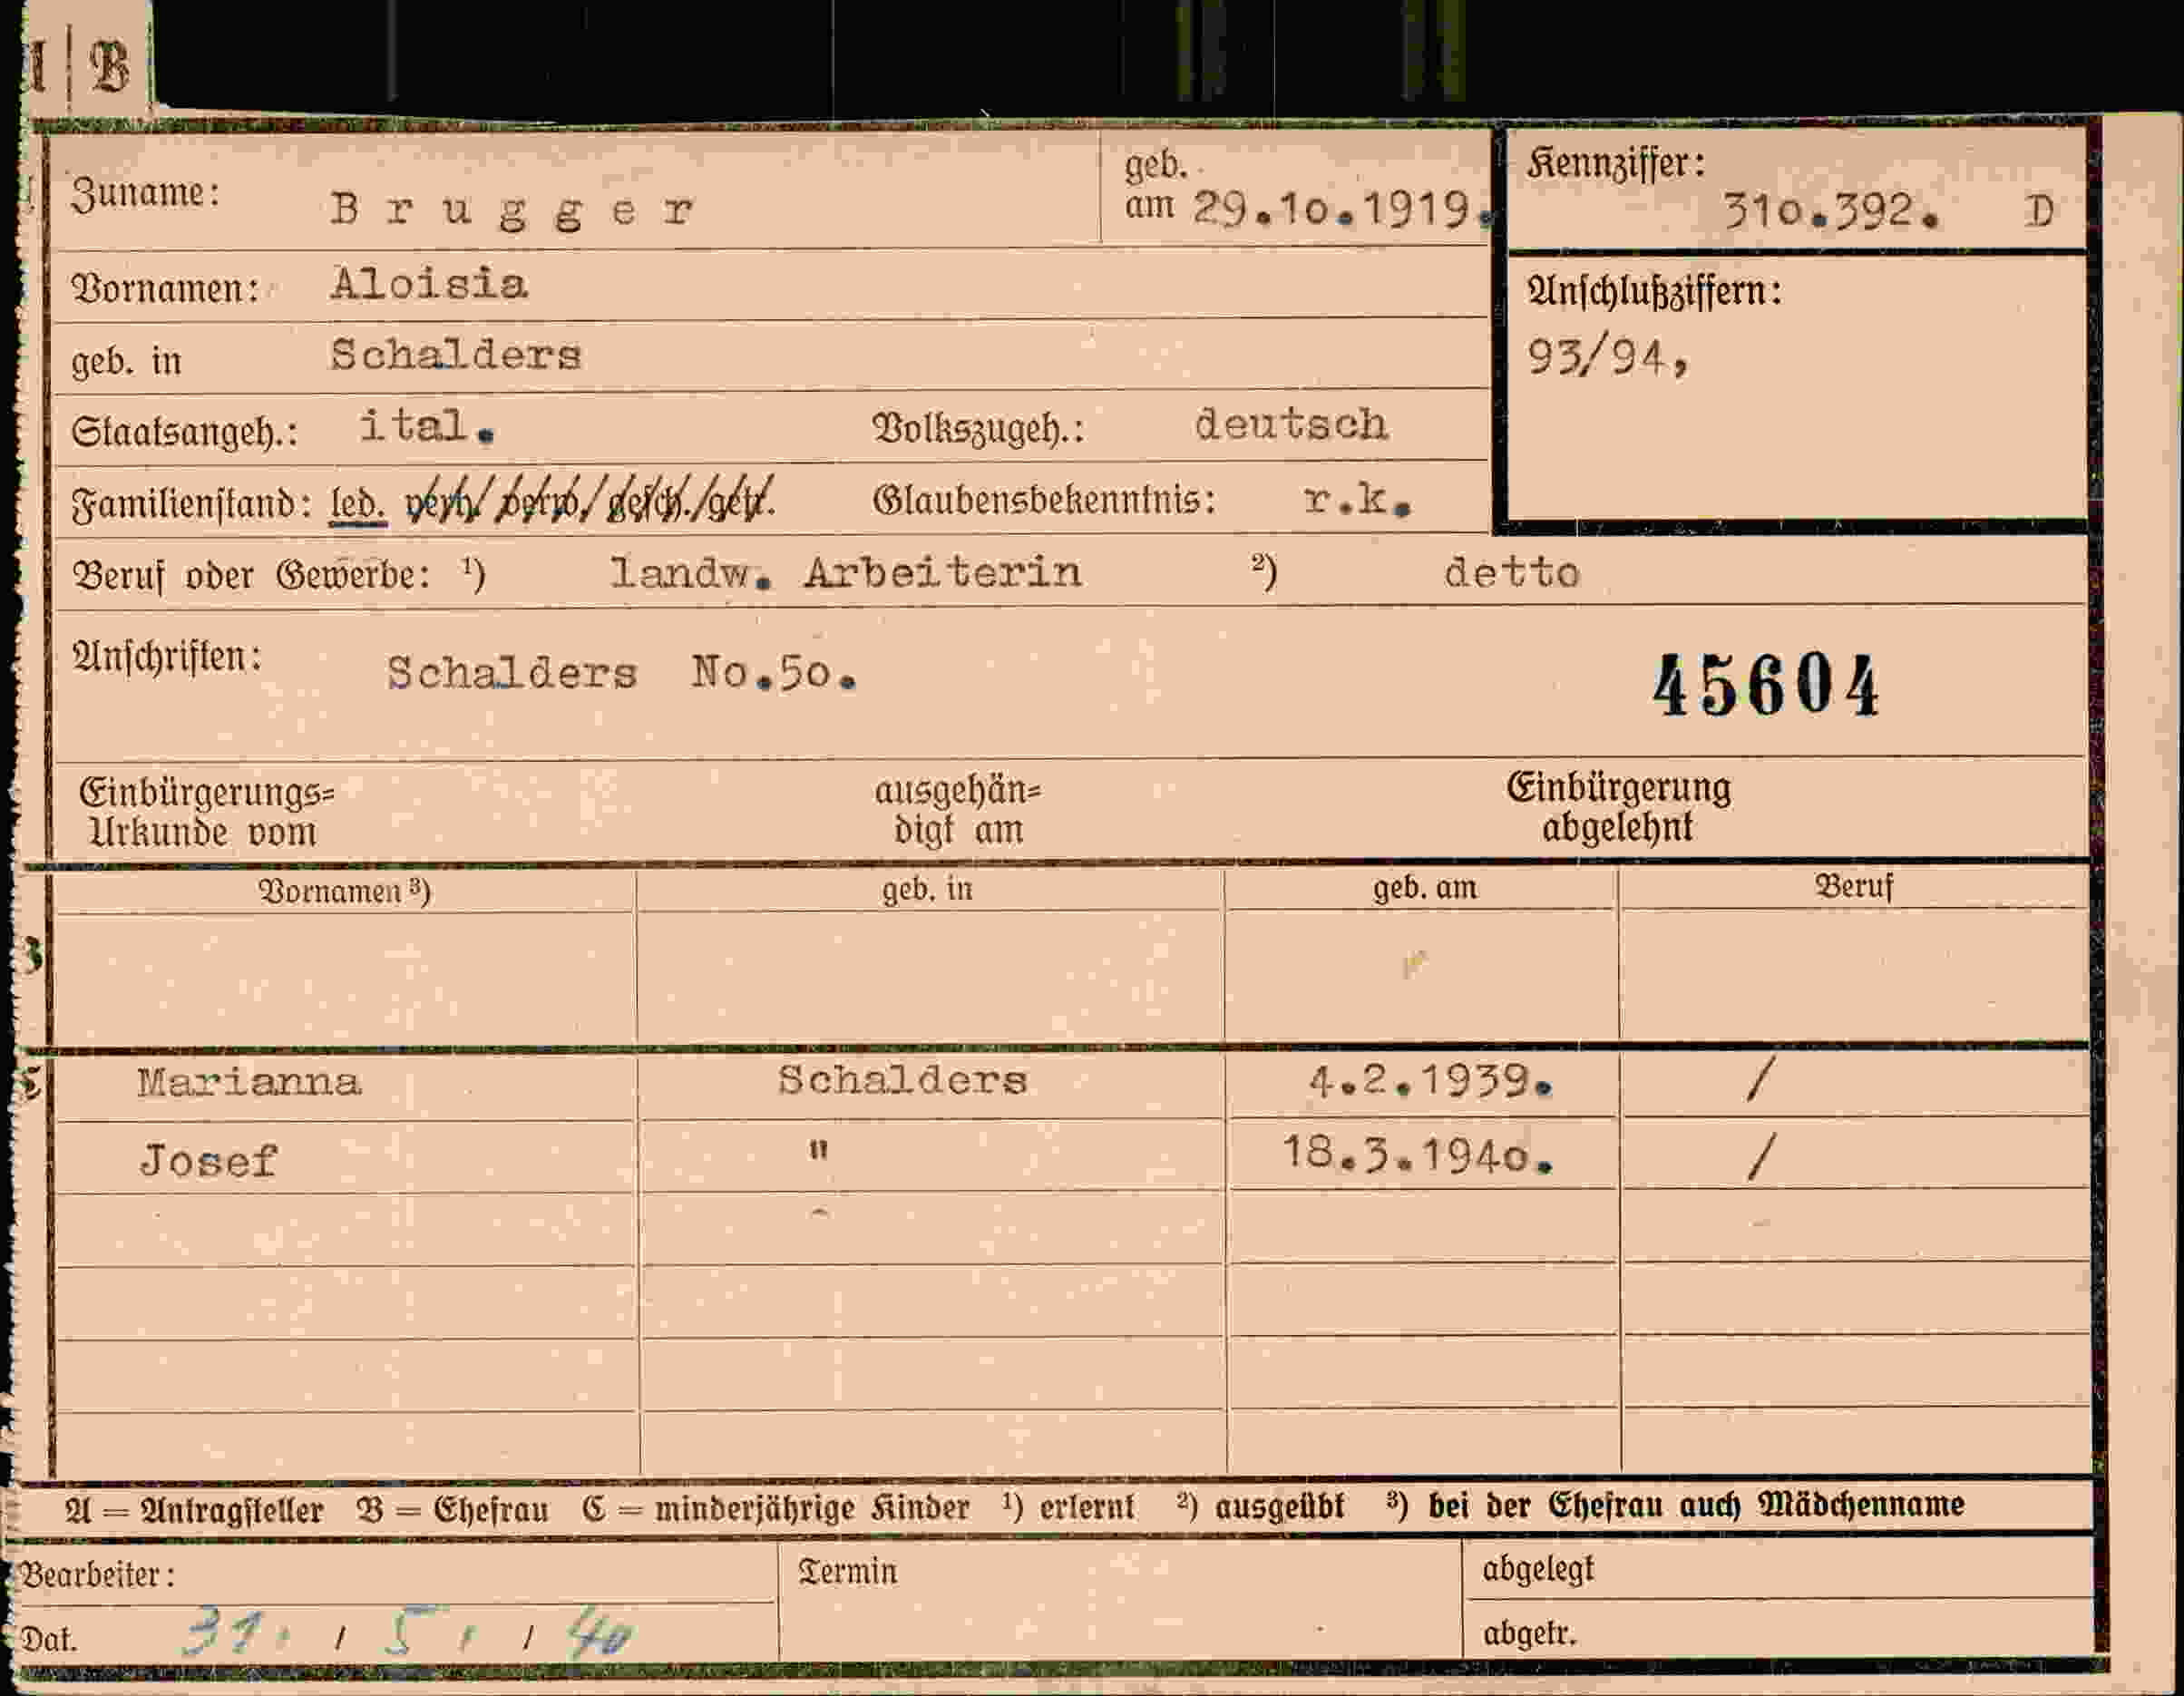 B
Zuname: Brugger geb. am 29.10.1919. Kennziffer: 310.392. D
Vornamen: Aloisia Anschlußziffern:
geb. in Schalders 93/94,
Staatsangeh.: ital. Volkszugeh.: deutsch
Familienstand: led. verh./verw./gesch./getr. Glaubensbekenntnis: r.k.
Beruf oder Gewerbe: ¹) landw. Arbeiterin ²) detto
Anschriften: Schalders No.50. 45604
Einbürgerungs= ausgehän= Einbürgerung
Urkunde vom digt am abgelehnt
Vornamen ³) geb. in geb. am Beruf
Marianna Schalders 4.2.1939. /
Josef " 18.3.1940. /
A = Antragsteller B = Ehefrau C = minderjährige Kinder ¹) erlernt ²) ausgeübt ³) bei der Ehefrau auch Mädchenname
Bearbeiter: Termin abgelegt
Dat. 31. / 5. / 40 abgetr.